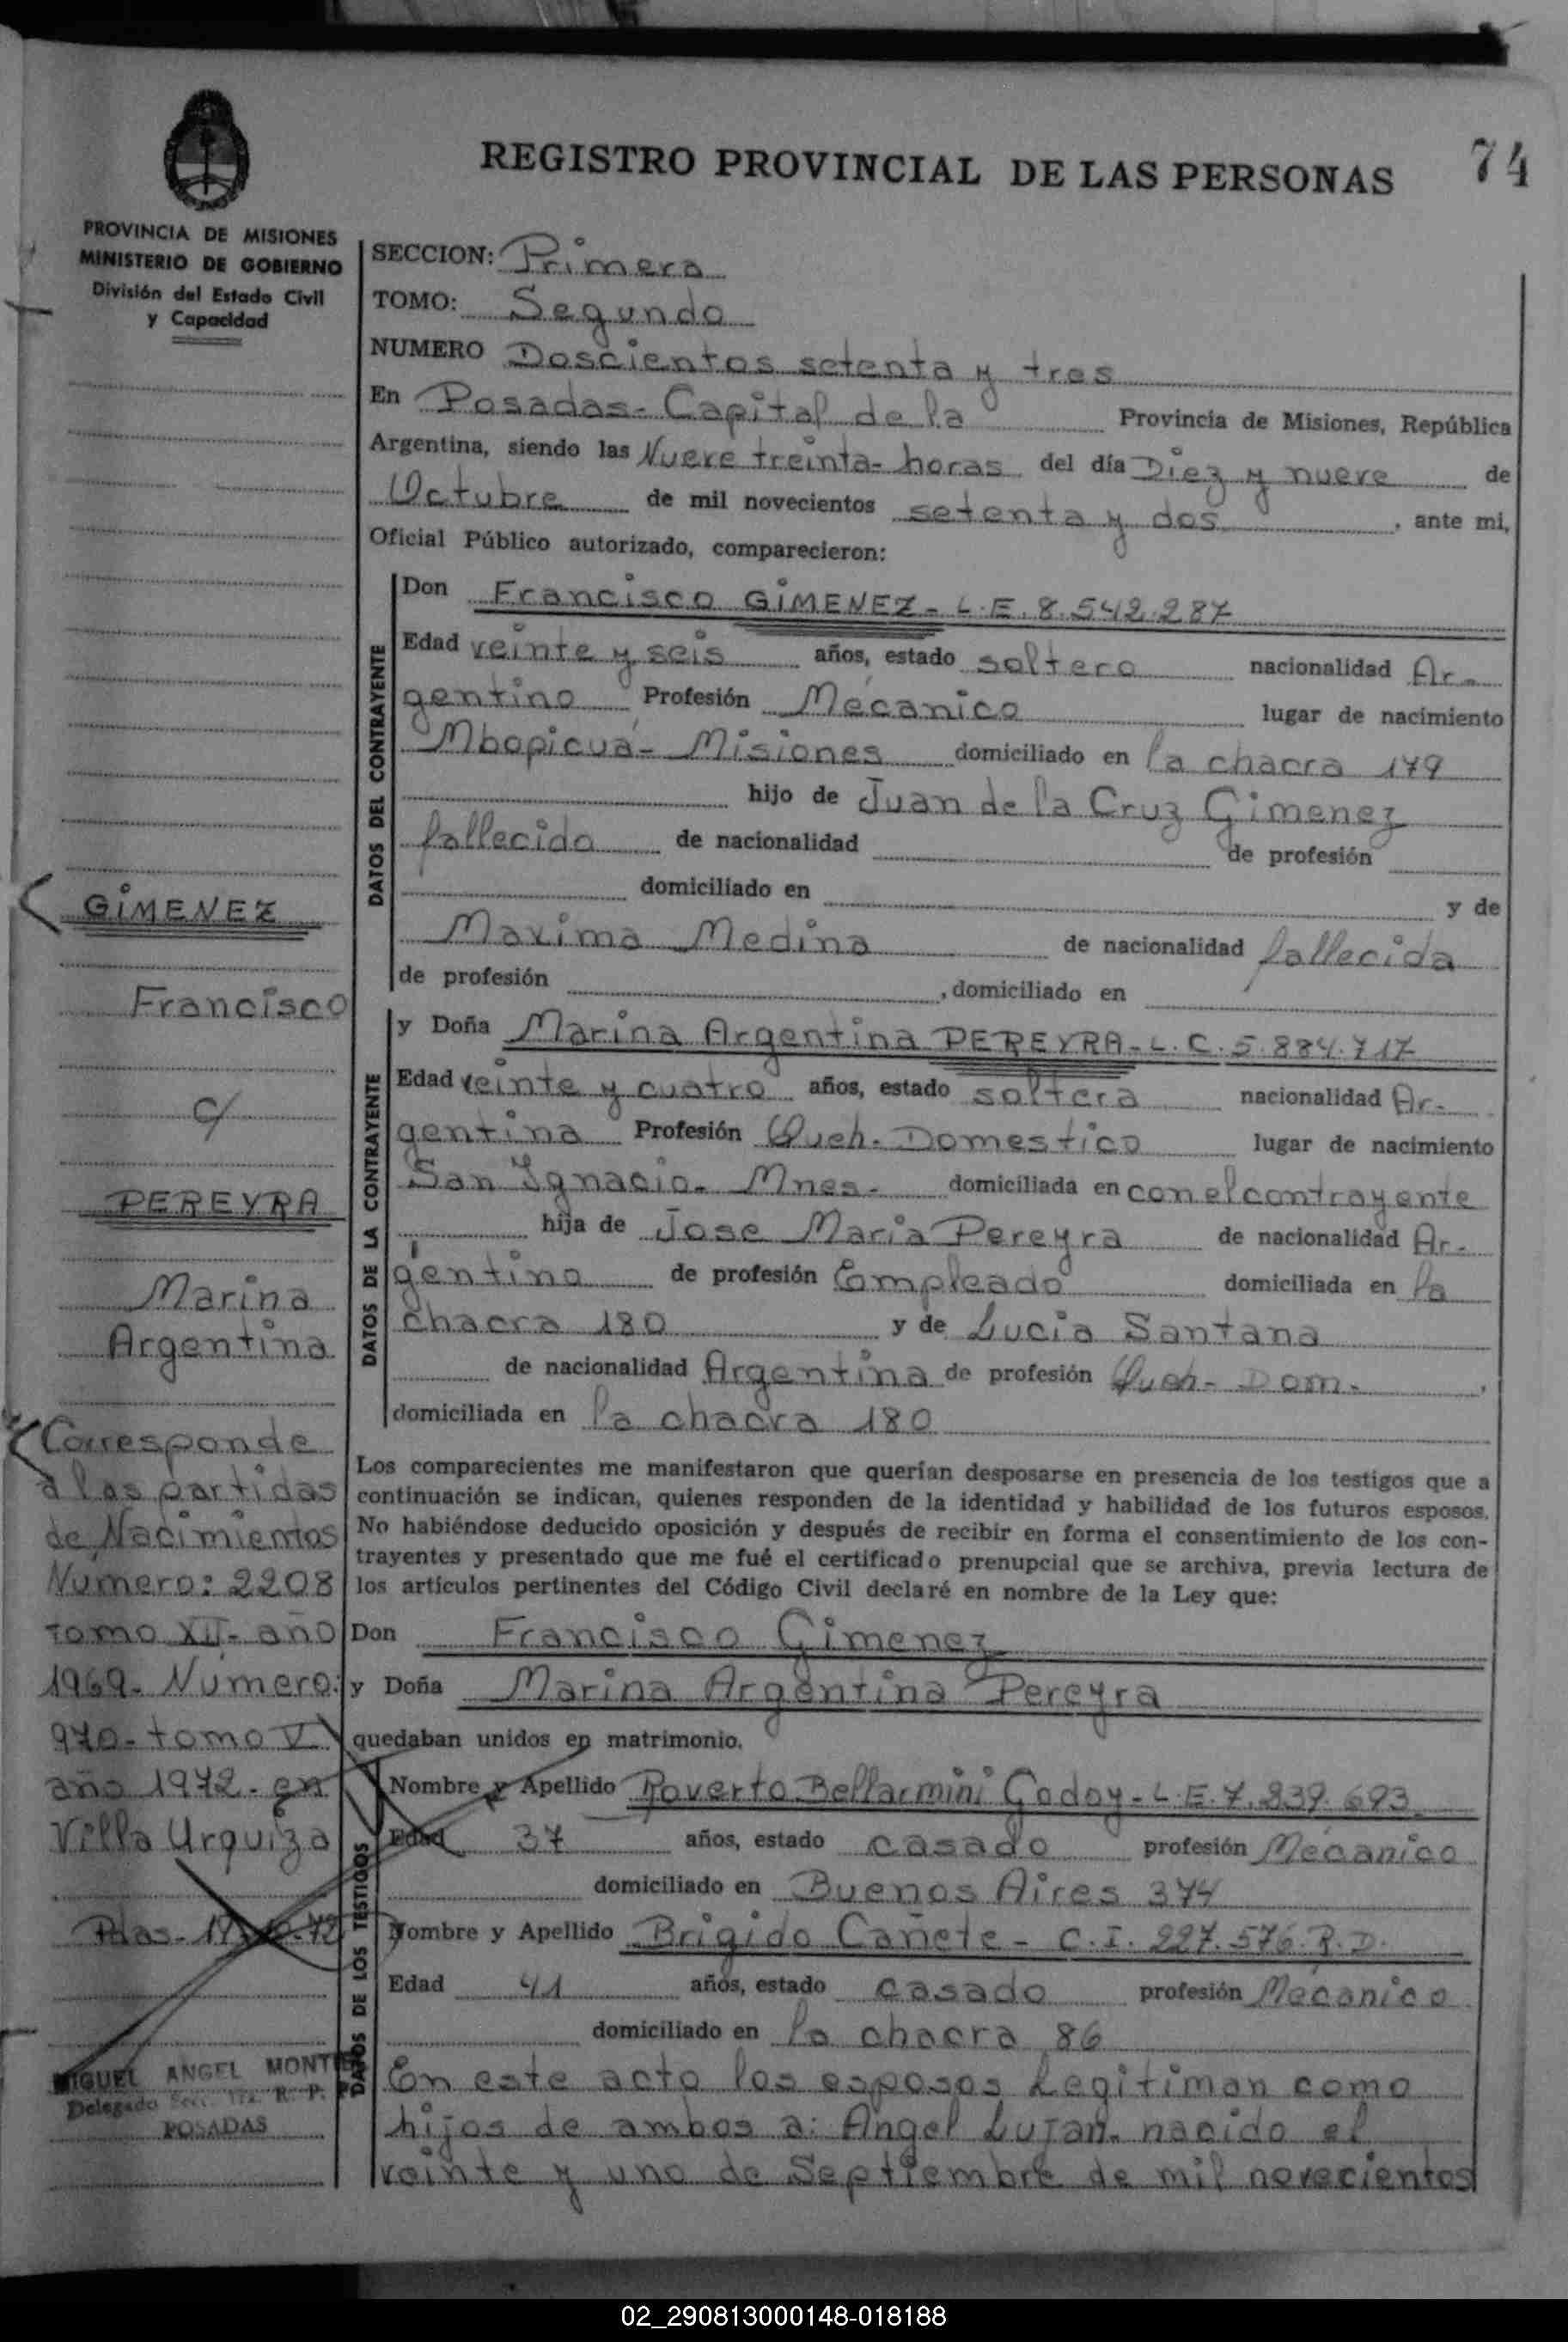 REGISTRO PROVINCIAL DE LAS PERSONAS
74
PROVINCIA DE MISIONES
MINISTERIO DE GOBIERNO
División del Estado Civil
y Capacidad
SECCION: Primera
TOMO: Segundo
NUMERO Doscientos setenta y tres
En Posadas- Capital de la Provincia de Misiones, República
Argentina, siendo las Nueve treinta- horas del día Diez y nueve de
Octubre de mil novecientos setenta y dos, ante mi,
Oficial Público autorizado, comparecieron:
DATOS DEL CONTRAYENTE
Don Francisco GIMENEZ- L.E. 8.542.287
Edad veinte y seis años, estado soltero nacionalidad Ar-
gentino Profesión Mecánico lugar de nacimiento
Mbopicuá- Misiones domiciliado en la chacra 179
hijo de Juan de la Cruz Gimenez
fallecido de nacionalidad de profesión
domiciliado en y de
Maxima Medina de nacionalidad fallecida
de profesión , domiciliado en
DATOS DE LA CONTRAYENTE
y Doña Marina Argentina PEREYRA- L.C. 5.884.717
Edad veinte y cuatro años, estado soltera nacionalidad Ar-
gentina Profesión Queh. Domestico lugar de nacimiento
San Ignacio- Mnes- domiciliada en con el contrayente
hija de Jose Maria Pereyra de nacionalidad Ar-
gentino de profesión Empleado domiciliada en la
chacra 180 y de Lucia Santana
de nacionalidad Argentina de profesión Queh- Dom- ,
domiciliada en la chacra 180
Los comparecientes me manifestaron que querían desposarse en presencia de los testigos que a
continuación se indican, quienes responden de la identidad y habilidad de los futuros esposos.
No habiéndose deducido oposición y después de recibir en forma el consentimiento de los con-
trayentes y presentado que me fué el certificado prenupcial que se archiva, previa lectura de
los artículos pertinentes del Código Civil declaré en nombre de la Ley que:
Don Francisco Gimenez
y Doña Marina Argentina Pereyra
quedaban unidos en matrimonio.
DATOS DE LOS TESTIGOS
Nombre y Apellido Roverto Bellarmini Godoy- L.E. 7.239.693
Edad 37 años, estado casado profesión Mecánico
domiciliado en Buenos Aires 374
Nombre y Apellido Brigido Cañete- C.I. 227.576. R.D.
Edad 41 años, estado casado profesión Mecánico
domiciliado en la chacra 86
En este acto los esposos Legitiman como
hijos de ambos a: Angel Lujan- nacido el
veinte y uno de Septiembre de mil novecientos
GIMENEZ
Francisco
c/
PEREYRA
Marina
Argentina
Corresponde
a las partidas
de Nacimientos
Numero: 2208
tomo XII- año
1969- Número:
970- tomo V
año 1972- en
Villa Urquiza
Pdas- 19-10-72
MIGUEL ANGEL
Delegado Secc. 1ra. R. P. P
POSADAS
02_290813000148-018188